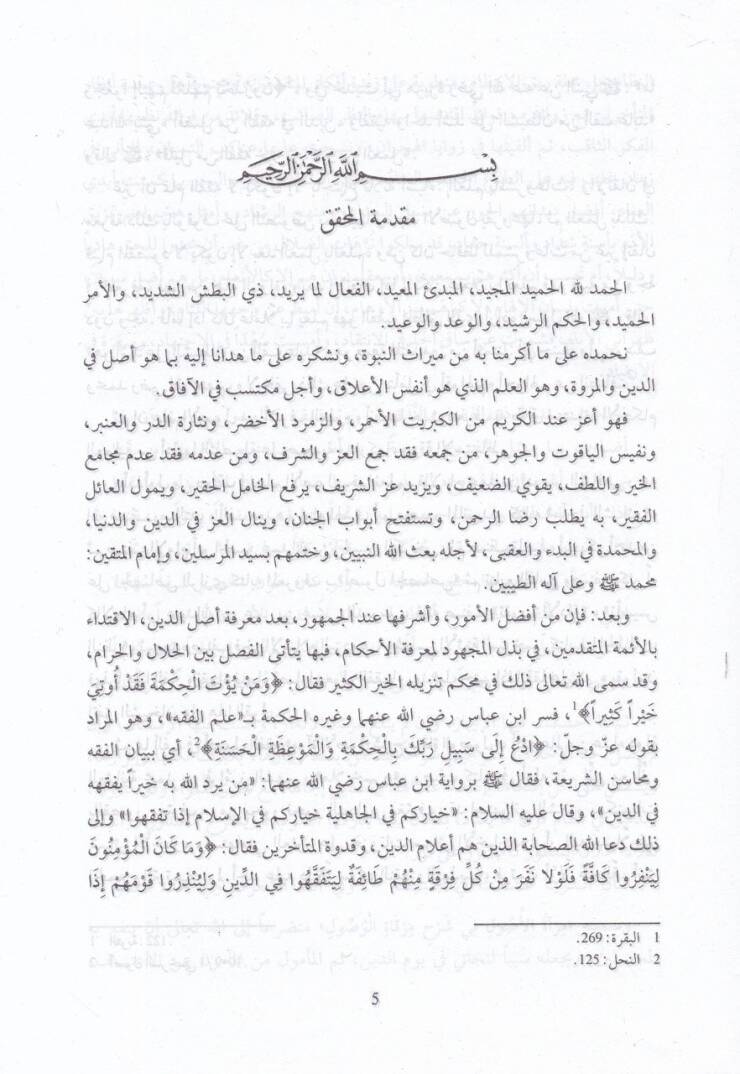 بسم الله الرحمن الرحيم
مقدمة المحقق
الحمد لله الحميد المجيد، المبدئ المعيد، الفعال لما يريد، ذي البطش الشديد، والأمر
الحميد، والحكم الرشيد، والوعد والوعيد.
نحمده على ما أكرمنا به من ميراث النبوة، ونشكره على ما هدانا إليه بما هو أصل في
الدين والمروة، وهو العلم الذي هو أنفس الأعلاق، وأجل مكتسب في الآفاق.
فهو أعز عند الكريم من الكبريت الأحمر، والزمرد الأخضر، ونثارة الدر والعنبر،
ونفيس الياقوت والجوهر، من جمعه فقد جمع العز والشرف، ومن عدمه فقد عدم مجامع
الخير واللطف، يقوي الضعيف، ويزيد عز الشريف، يرفع الخامل الحقير، ويمول العائل
الفقير، به يطلب رضا الرحمن، وتستفتح أبواب الجنان، وينال العز في الدين والدنيا،
والمحمدة في البدء والعقبى، لأجله بعث الله النبيين، وختمهم بسيد المرسلين، وإمام المتقين:
محمد ﷺ وعلى آله الطيبين.
وبعد: فإن من أفضل الأمور، وأشرفها عند الجمهور، بعد معرفة أصل الدين، الاقتداء
بالأئمة المتقدمين، في بذل المجهود لمعرفة الأحكام، فبها يتأتى الفصل بين الحلال والحرام،
وقد سمى الله تعالى ذلك في محكم تنزيله الخير الكثير فقال: ﴿وَمَنْ يُؤْتَ الحِكْمَةَ فَقَدْ أُوتِيَ
خَيْراً كَثِيراً﴾1، فسر ابن عباس رضي الله عنهما وغيره الحكمة بـ«علم الفقه»، وهو المراد
بقوله عزّ وجلّ: ﴿ادْعُ إِلَى سَبِيلِ رَبِّكَ بِالْحِكْمَةِ وَالْمَوْعِظَةِ الْحَسَنَةِ﴾2، أي ببيان الفقه
ومحاسن الشريعة، فقال ﷺ برواية ابن عباس رضي الله عنهما: «من يرد الله به خيراً يفقهه
في الدين»، وقال عليه السلام: «خياركم في الجاهلية خياركم في الإسلام إذا تفقهوا» وإلى
ذلك دعا الله الصحابة الذين هم أعلام الدين، وقدوة المتأخرين فقال: ﴿وَمَا كَانَ الْمُؤْمِنُونَ
لِيَنْفِرُوا كَافَّةً فَلَوْلا نَفَرَ مِنْ كُلِّ فِرْقَةٍ مِنْهُمْ طَائِفَةٌ لِيَتَفَقَّهُوا فِي الدِّينِ وَلِيُنْذِرُوا قَوْمَهُمْ إِذَا
1 البقرة: 269.
2 النحل: 125.
5